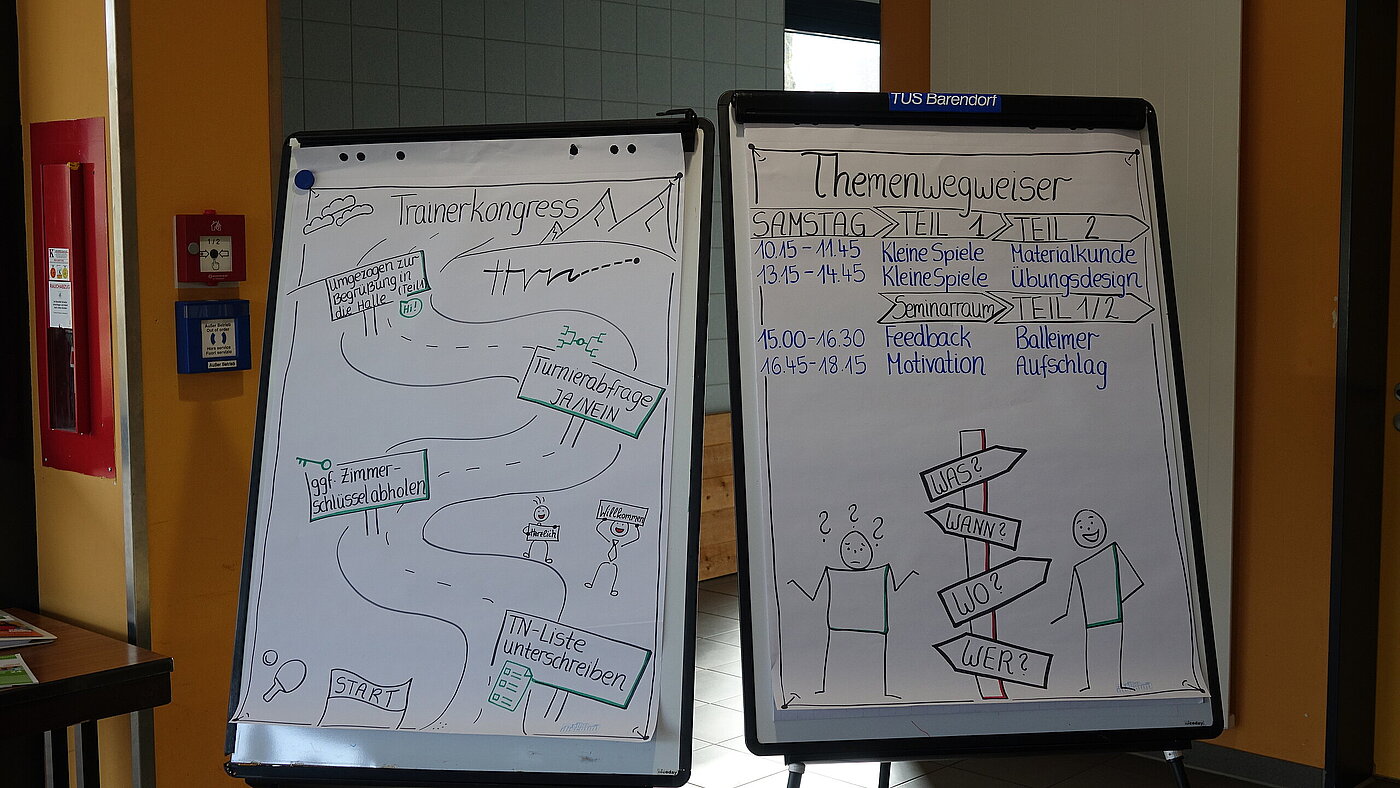 Trainerkongress
Umgezogen zur
Begrüßung in
die Halle (Teil 1)
Hi!
Turnierabfrage
JA/NEIN
ggf. Zimmer-
schlüssel abholen
Herzlich
Willkommen
TN-Liste
unterschreiben
START
TUS Barendorf
Themenwegweiser
SAMSTAG TEIL 1 TEIL 2
10.15 - 11.45 Kleine Spiele Materialkunde
13.15 - 14.45 Kleine Spiele Übungsdesign
Seminarraum TEIL 1/2
15.00 - 16.30 Feedback Balleimer
16.45 - 18.15 Motivation Aufschlag
? ? ?
WAS?
WANN?
WO?
WER?
Außer Betrieb
Out of order
Hors service
Außer Betrieb
RAUCHABZUG